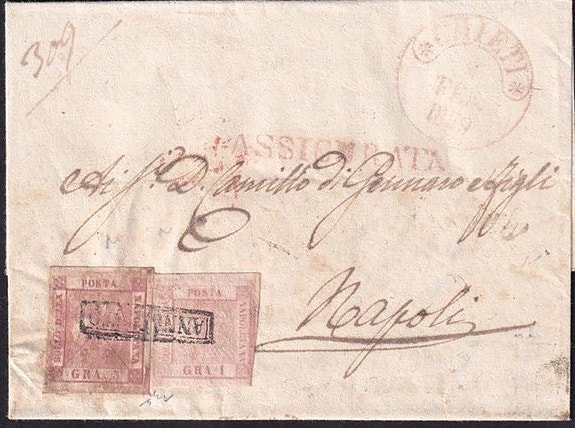 309
CHIETI
FEB
1859
ASSICURATA
Ai Sig.i D. Camillo di Gennaro e Figli
Napoli
POSTA
GRA. 5
POSTA
GRA. 1
ANNULLATO